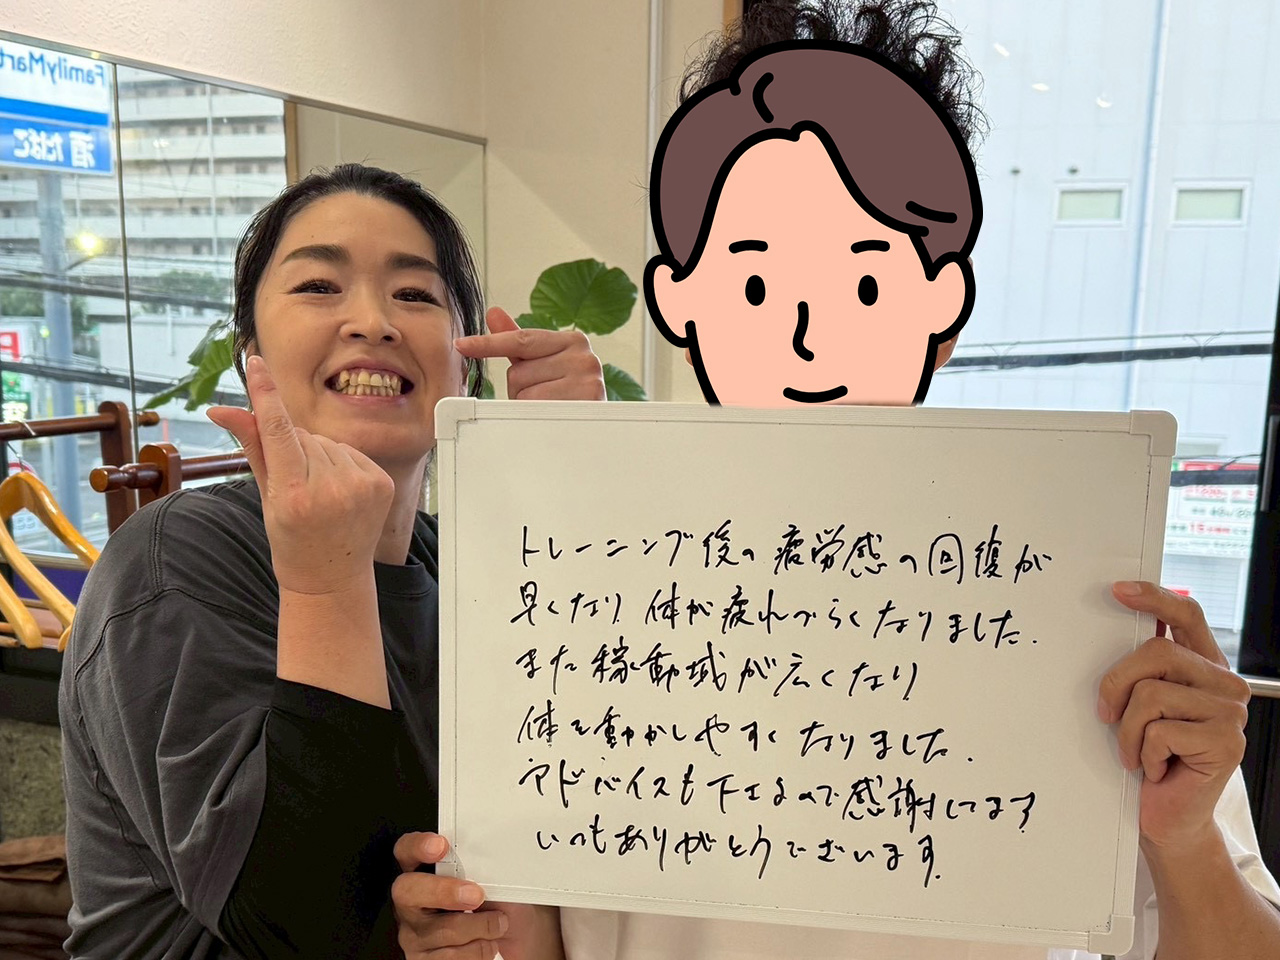 FamilyMart
酒 たばこ
トレーニング後の疲労感の回復が
早くなり 体が疲れづらくなりました.
また稼動域が広くなり
体を動かしやすくなりました.
アドバイスも下さるので感謝してます
いつもありがとうございます.